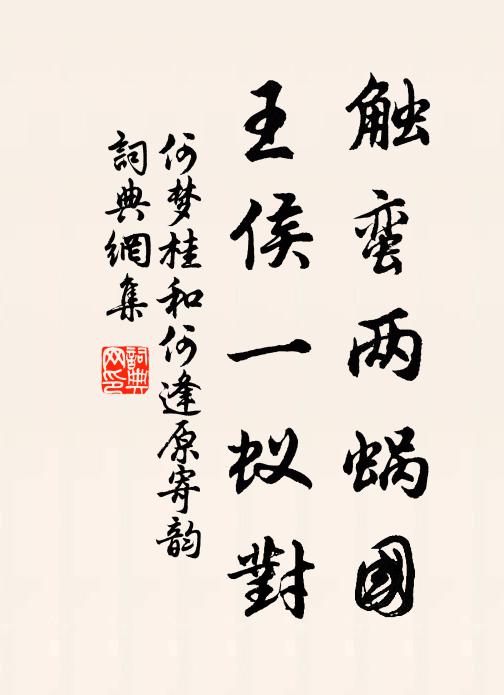 触蛮两蜗國
王侯一蚁對
何梦桂和何逢原寄韵
詞典網集
詞典网印